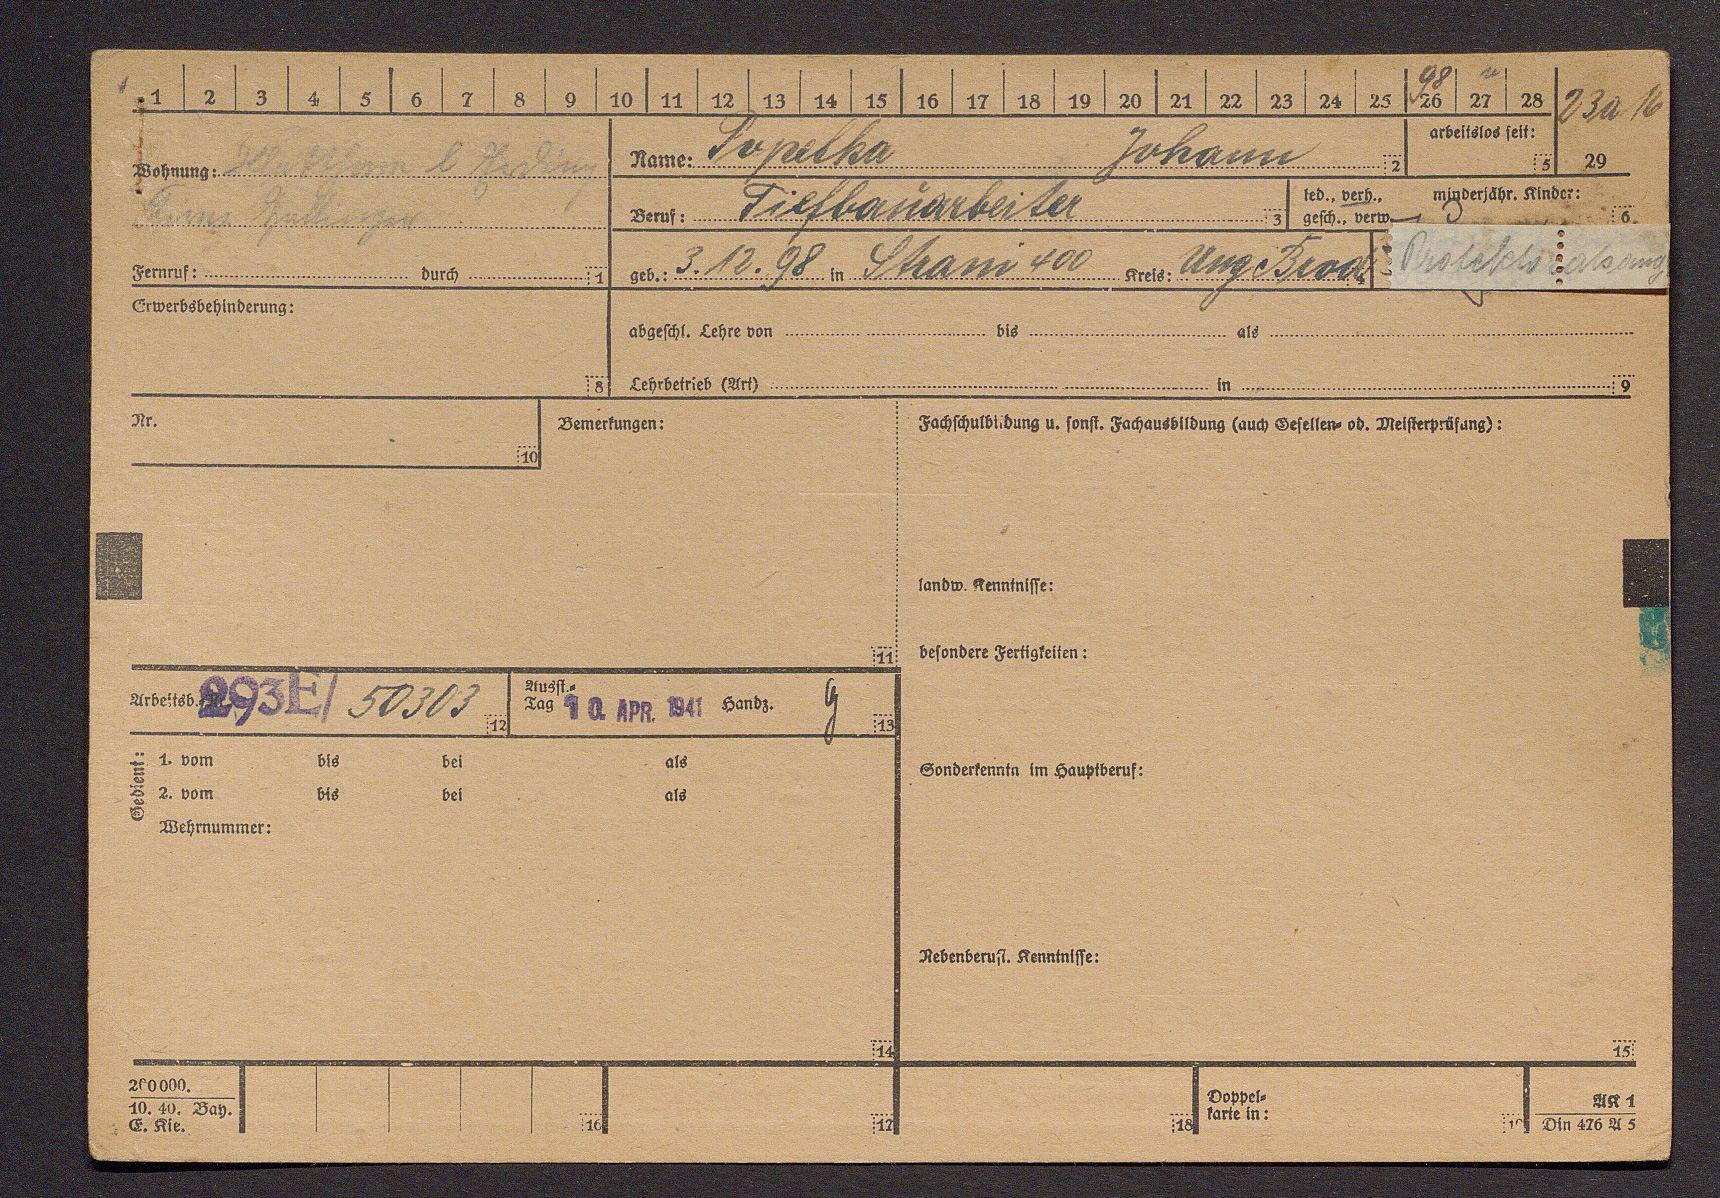 1 2 3 4 5 6 7 8 9 10 11 12 13 14 15 16 17 18 19 20 21 22 23 24 25 26 27 28
98
23a 16
29
Wohnung:
Fernruf: durch 1
Name: Popelka Johann 2
arbeitslos seit: 5
Beruf: Tiefbauarbeiter 3
led., verh.,
gesch., verw.
minderjähr. Kinder: 3 6
geb.: 3.12.98 in Strani 400 Kreis: Ung Brod 4
Erwerbsbehinderung:
8
abgeschl. Lehre von bis als
Lehrbetrieb (Art) in 9
Nr.
10
Bemerkungen:
11
Fachschulbildung u. sonst. Fachausbildung (auch Gesellen- od. Meisterprüfung):
landw. Kenntnisse:
besondere Fertigkeiten:
Sonderkenntn im Hauptberuf:
Nebenberufl. Kenntnisse:
15
Arbeitsb. Nr. 293E/ 50303 12
Ausst.-
Tag 10. APR. 1941 Handz. 13
Gedient:
1. vom bis bei als
2. vom bis bei als
Wehrnummer:
14
200000.
10. 40. Bay.
E. Kie.
16
17
18
Doppel-
karte in:
19
AK 1
Din 476 A 5